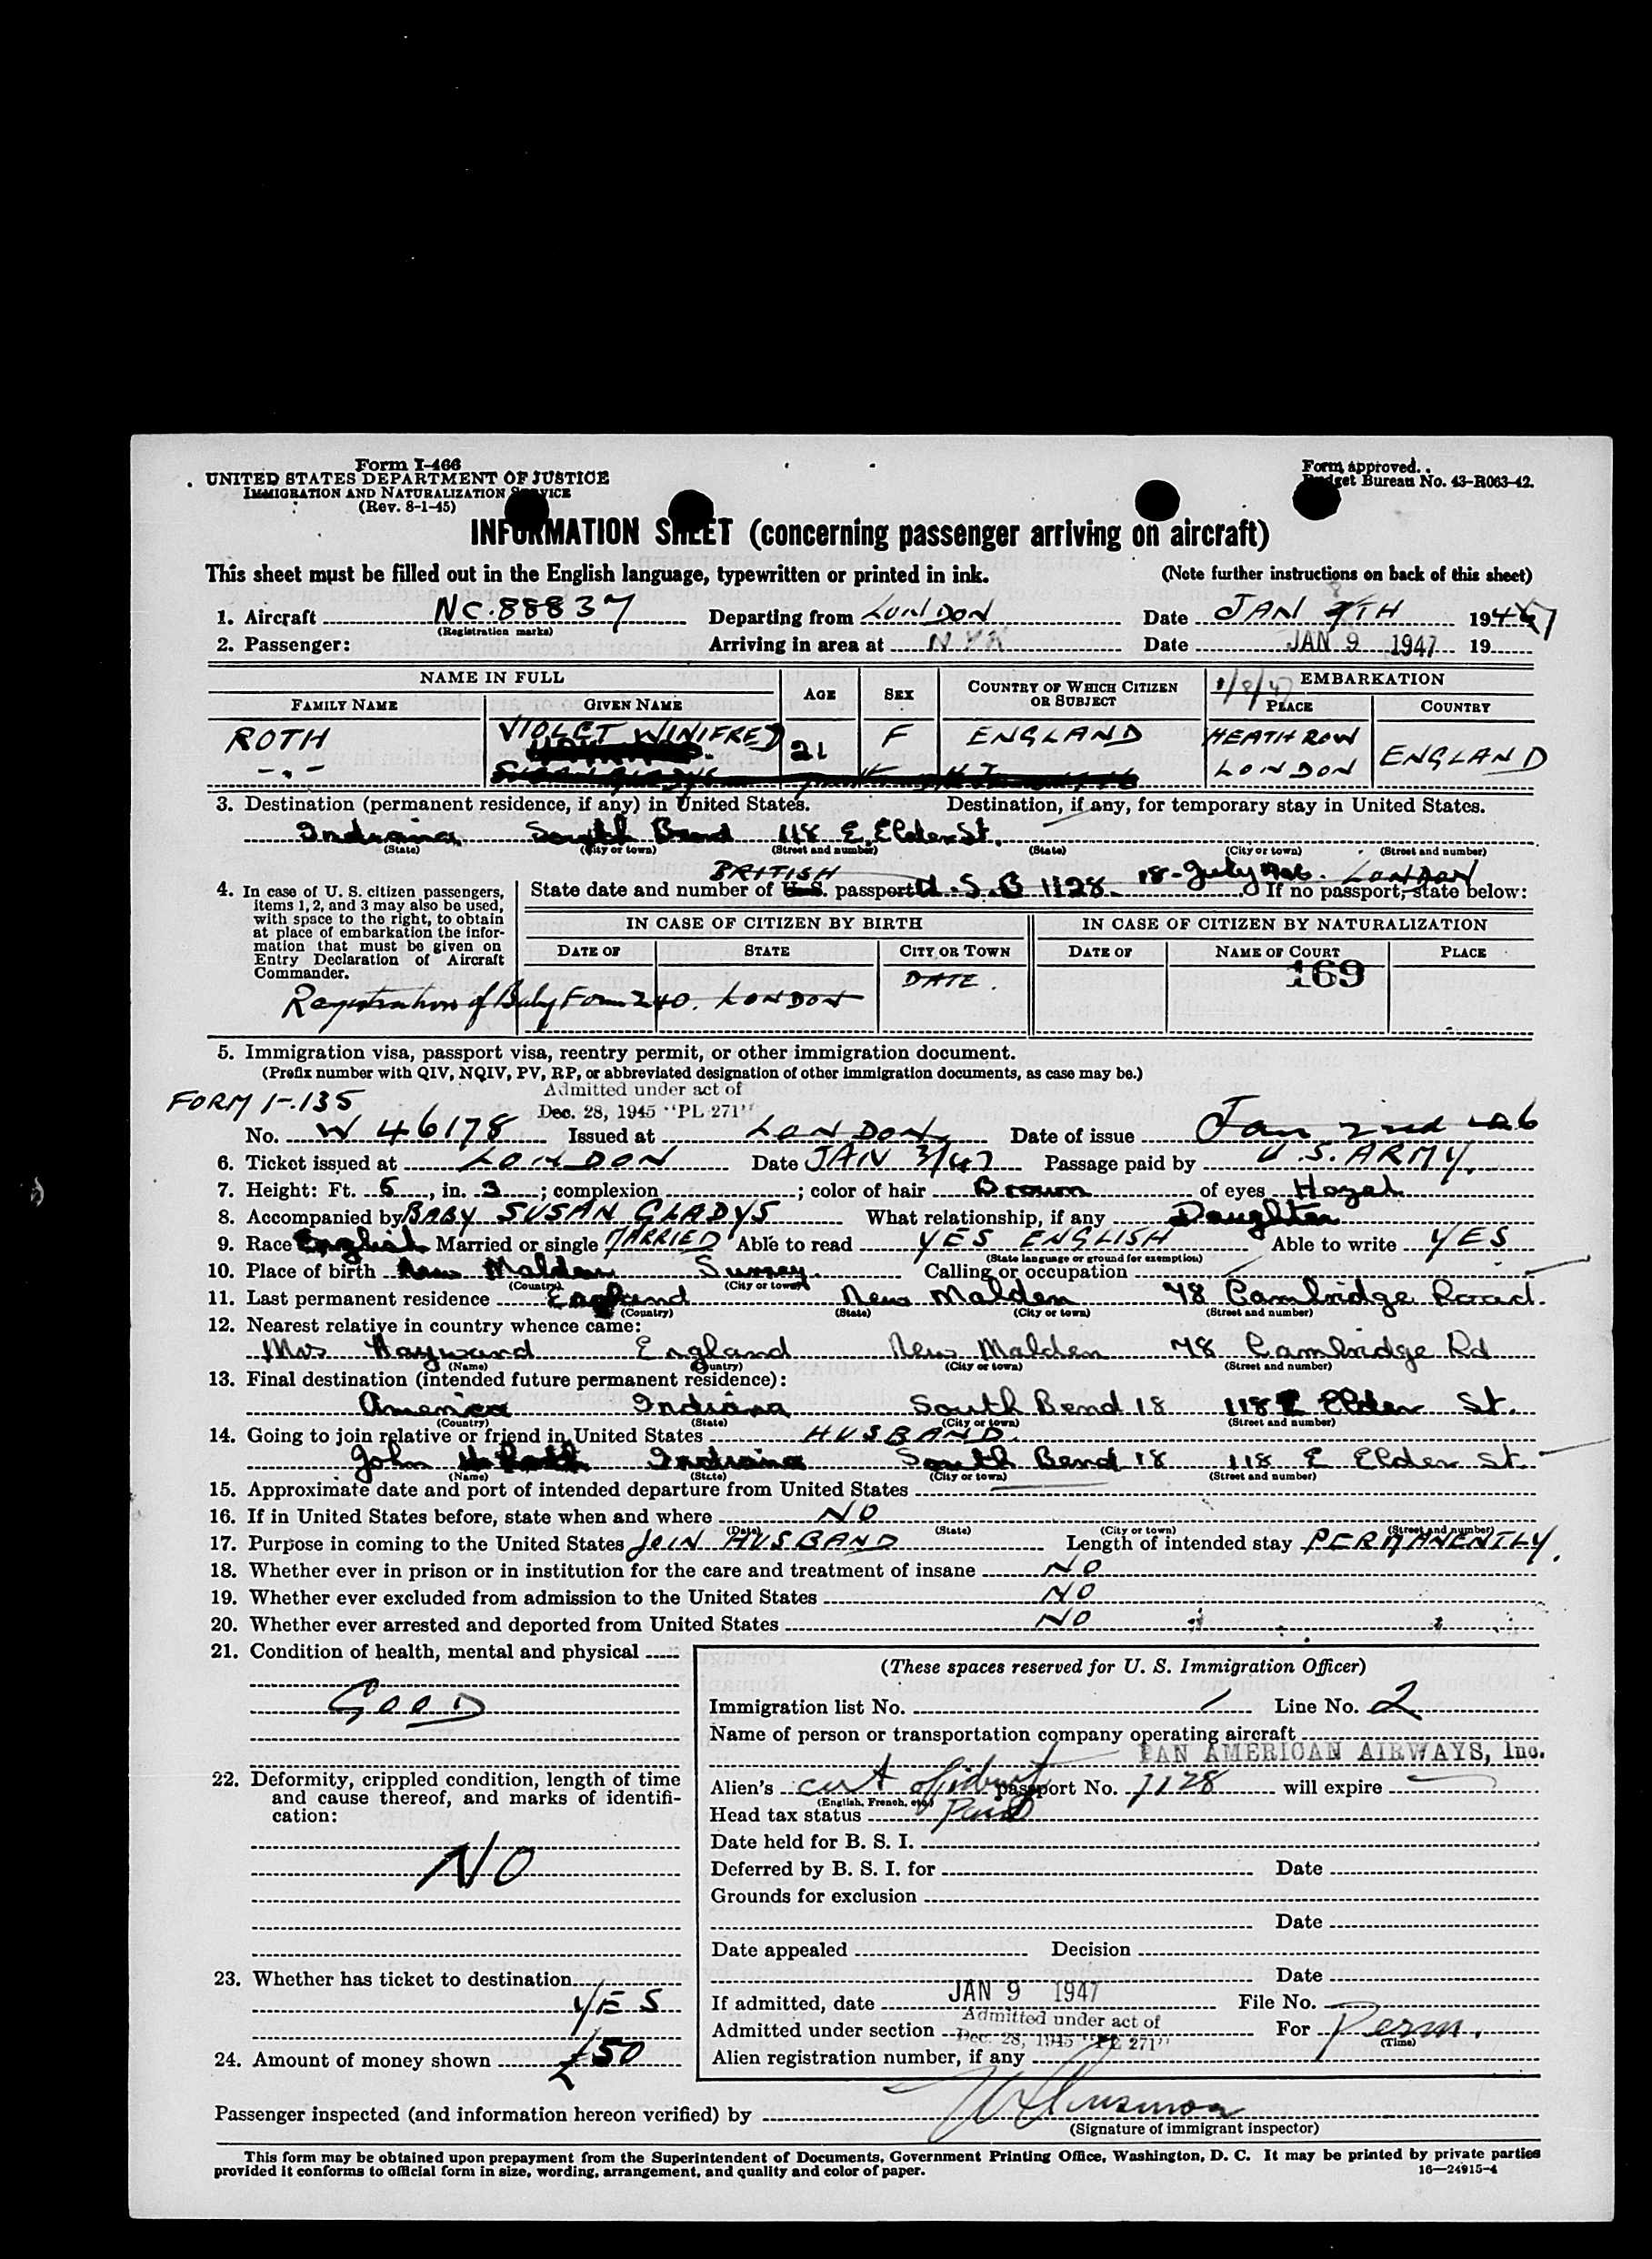 Form I-466
UNITED STATES DEPARTMENT OF JUSTICE
IMMIGRATION AND NATURALIZATION SERVICE
(Rev. 8-1-45)
Form approved.
Budget Bureau No. 43-R063-42.
INFORMATION SHEET (concerning passenger arriving on aircraft)
This sheet must be filled out in the English language, typewritten or printed in ink. (Note further instructions on back of this sheet)
1. Aircraft NC.88837 Departing from LONDON Date JAN 8TH 1947
(Registration marks)
2. Passenger: Arriving in area at N.Y.K Date JAN 9 1947 19
NAME IN FULL AGE SEX COUNTRY OF WHICH CITIZEN OR SUBJECT 1/8/47 EMBARKATION
FAMILY NAME GIVEN NAME PLACE COUNTRY
ROTH VIOLET WINIFRED 21 F ENGLAND HEATHROW LONDON ENGLAND
-.-
3. Destination (permanent residence, if any) in United States. Destination, if any, for temporary stay in United States.
Indiana South Bend 118 E. Elder St.
(State) (City or town) (Street and number) (State) (City or town) (Street and number)
4. In case of U. S. citizen passengers, items 1, 2, and 3 may also be used, with space to the right, to obtain at place of embarkation the information that must be given on Entry Declaration of Aircraft Commander.
BRITISH
State date and number of U. S. passport U.S.B 1128. 18-July LONDON If no passport, state below:
IN CASE OF CITIZEN BY BIRTH IN CASE OF CITIZEN BY NATURALIZATION
DATE OF STATE CITY OR TOWN DATE OF NAME OF COURT PLACE
DATE. 169
Registration of Baby Form 240. LONDON
5. Immigration visa, passport visa, reentry permit, or other immigration document.
(Prefix number with QIV, NQIV, PV, RP, or abbreviated designation of other immigration documents, as case may be.)
FORM I-135 Admitted under act of
Dec. 28, 1945 "PL 271"
No. W 46178 Issued at LONDON Date of issue Jan 2nd
6. Ticket issued at LONDON Date JAN 3/47 Passage paid by U.S. ARMY.
7. Height: Ft. 5, in. 3; complexion ; color of hair Brown of eyes Hazel
8. Accompanied by BABY SUSAN GLADYS What relationship, if any Daughter
9. Race English Married or single MARRIED Able to read YES ENGLISH Able to write YES
(State language or ground for exemption)
10. Place of birth New Malden Surrey. Calling or occupation
(Country) (City or town)
11. Last permanent residence England New Malden 48 Cambridge Road.
(Country) (State) (City or town) (Street and number)
12. Nearest relative in country whence came:
Mrs Hayward England New Malden 48 Cambridge Rd
(Name) (Country) (City or town) (Street and number)
13. Final destination (intended future permanent residence):
America Indiana South Bend 18 118 E Elder St.
(Country) (State) (City or town) (Street and number)
14. Going to join relative or friend in United States HUSBAND.
John Roth Indiana South Bend 18 118 E Elder St.
(Name) (State) (City or town) (Street and number)
15. Approximate date and port of intended departure from United States
16. If in United States before, state when and where NO
(Date) (State) (City or town) (Street and number)
17. Purpose in coming to the United States JOIN HUSBAND Length of intended stay PERMANENTLY.
18. Whether ever in prison or in institution for the care and treatment of insane NO
19. Whether ever excluded from admission to the United States NO
20. Whether ever arrested and deported from United States NO
21. Condition of health, mental and physical
GOOD
22. Deformity, crippled condition, length of time and cause thereof, and marks of identification:
NO
23. Whether has ticket to destination
YES
24. Amount of money shown £50
(These spaces reserved for U. S. Immigration Officer)
Immigration list No. 1 Line No. 2
Name of person or transportation company operating aircraft
PAN AMERICAN AIRWAYS, Inc.
Alien's cert of ident passport No. 1128 will expire
(English, French, etc.)
Head tax status Paid
Date held for B. S. I.
Deferred by B. S. I. for Date
Grounds for exclusion
Date
Date appealed Decision
Date
If admitted, date JAN 9 1947 File No.
Admitted under act of
Admitted under section Dec. 28, 1945 "PL 271" For Perm.
(Time)
Alien registration number, if any
Passenger inspected (and information hereon verified) by
(Signature of immigrant inspector)
This form may be obtained upon prepayment from the Superintendent of Documents, Government Printing Office, Washington, D. C. It may be printed by private parties
provided it conforms to official form in size, wording, arrangement, and quality and color of paper. 16—24915-4